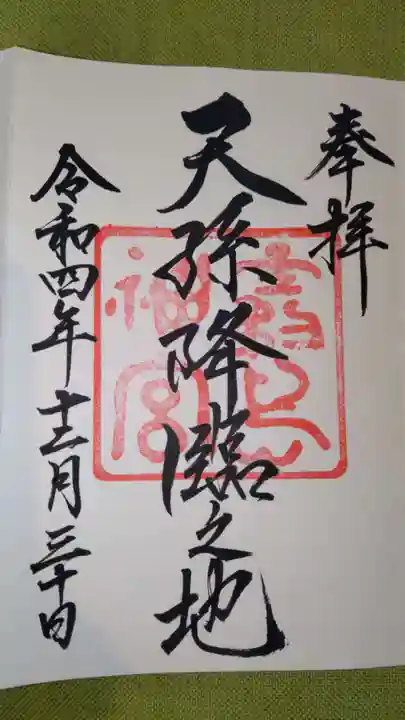 奉拝
天孫降臨之地
令和四年十二月三十日